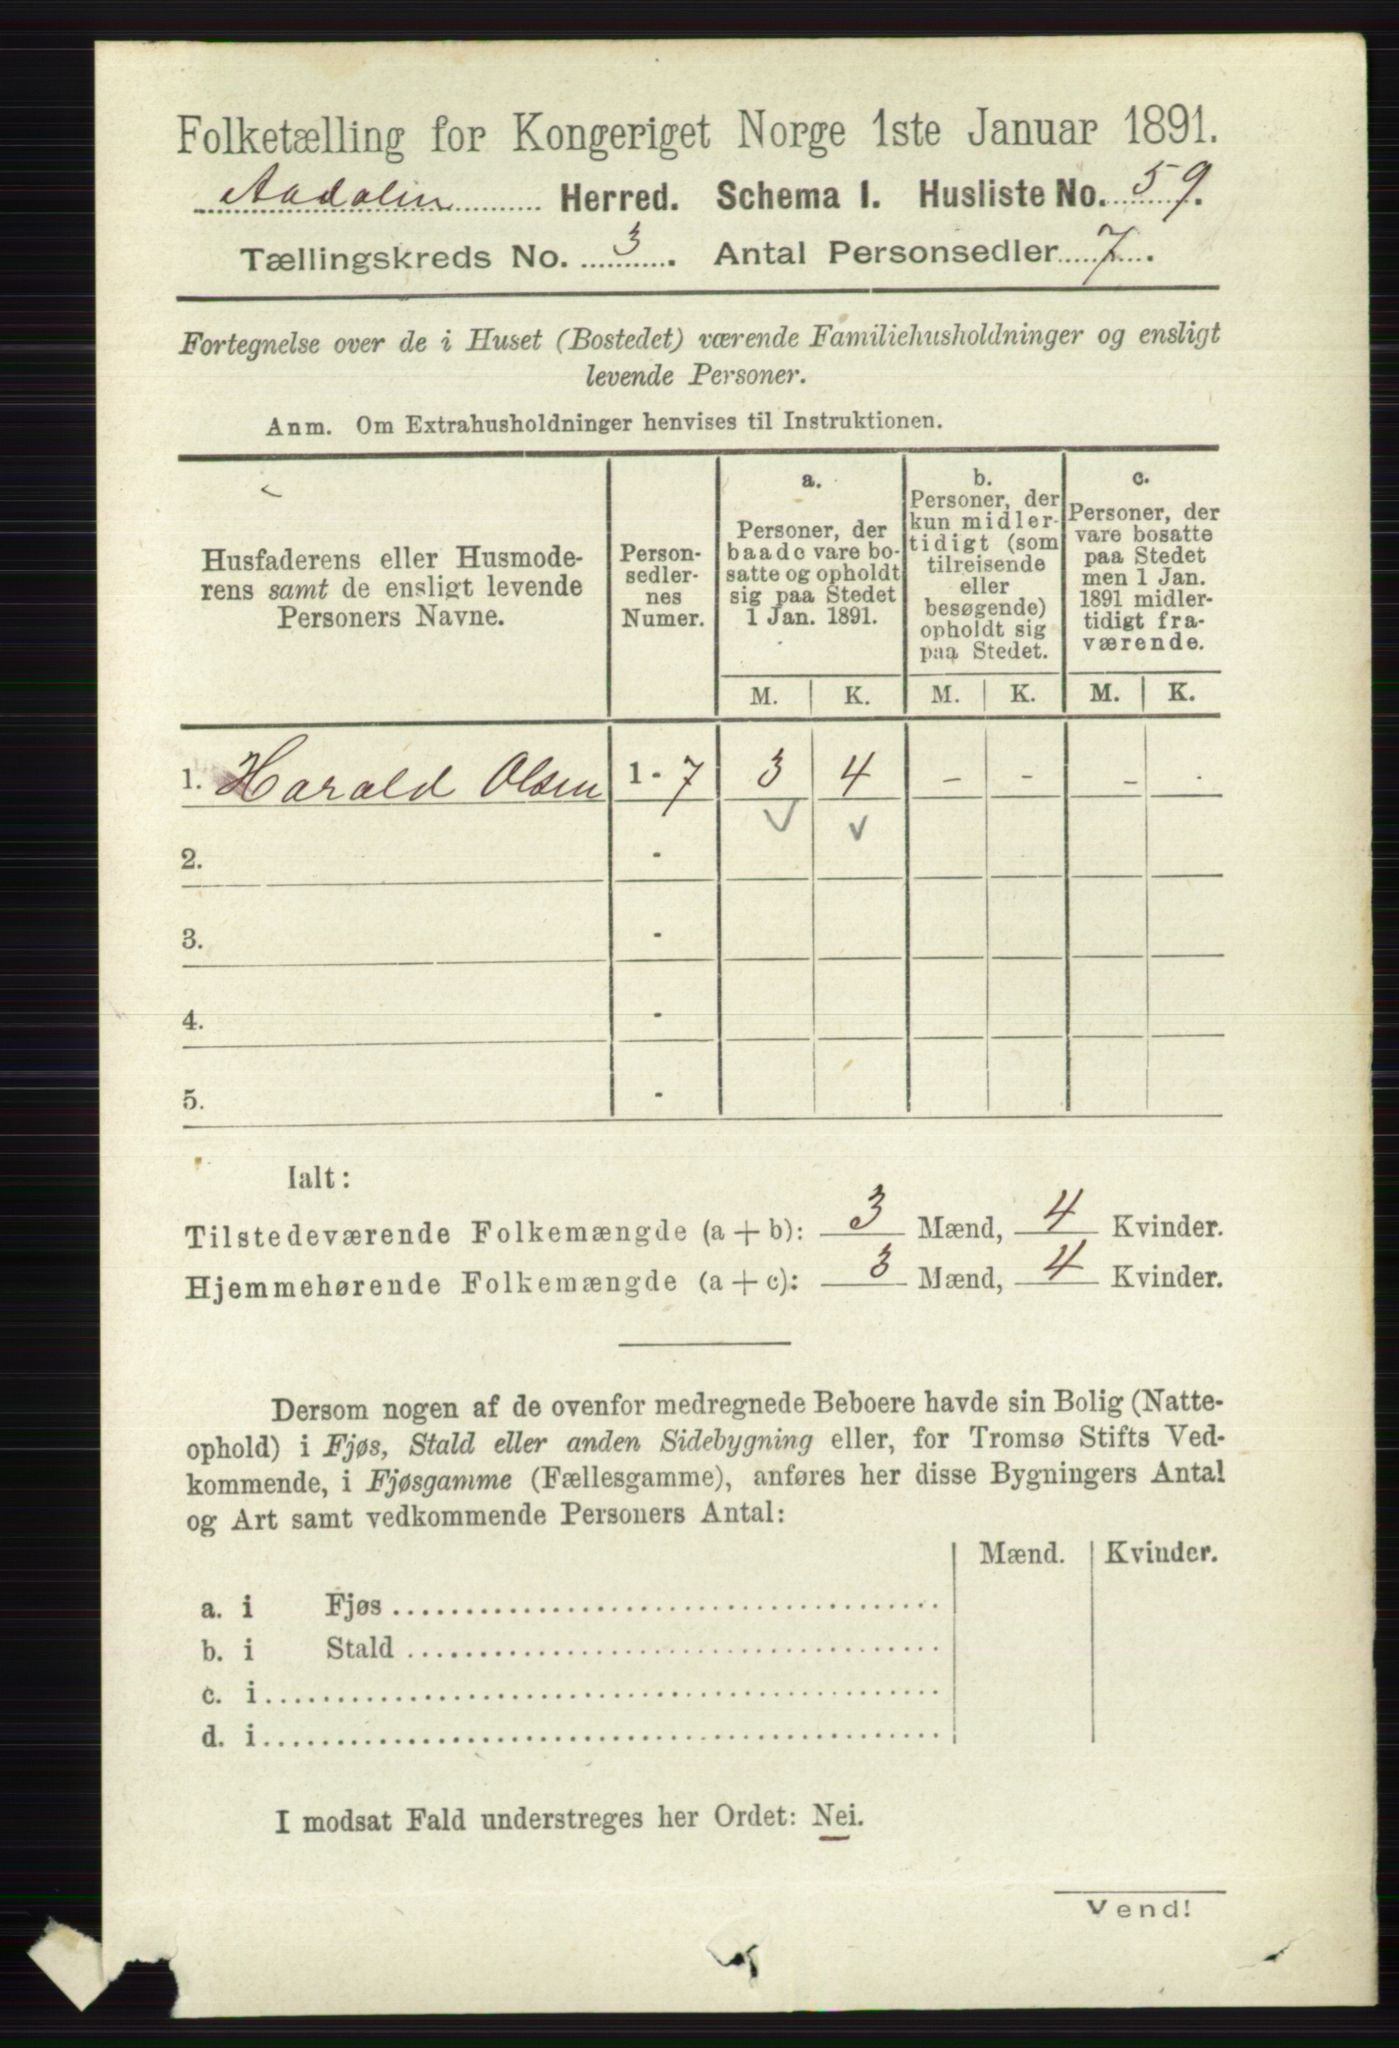 Folketælling for Kongeriget Norge 1ste Januar 1891.
Aadalen Herred. Schema I. Husliste No. 59.
Tællingskreds No. 3. Antal Personsedler 7.
Fortegnelse over de i Huset (Bostedet) værende Familiehusholdninger og ensligt
levende Personer.
Anm. Om Extrahusholdninger henvises til Instruktionen.
Husfaderens eller Husmode-
rens samt de ensligt levende
Personers Navne.
Person-
sedler-
nes
Numer.
a.
Personer, der
baade vare bo-
satte og opholdt
sig paa Stedet
1 Jan. 1891.
b.
Personer, der
kun midler-
tidigt (som
tilreisende
eller
besøgende)
opholdt sig
paa Stedet.
c.
Personer, der
vare bosatte
paa Stedet
men 1 Jan.
1891 midler-
tidigt fra-
værende.
M. K. M. K. M. K.
1. Harald Olsen 1 - 7 3 4 - - - .
2. -
3. -
4. -
5. -
Ialt:
Tilstedeværende Folkemængde (a + b): 3 Mænd, 4 Kvinder.
Hjemmehørende Folkemængde (a + c): 3 Mænd, 4 Kvinder.
Dersom nogen af de ovenfor medregnede Beboere havde sin Bolig (Natte-
ophold) i Fjøs, Stald eller anden Sidebygning eller, for Tromsø Stifts Ved-
kommende, i Fjøsgamme (Fællesgamme), anføres her disse Bygningers Antal
og Art samt vedkommende Personers Antal:
Mænd. Kvinder.
a. i Fjøs
b. i Stald
c. i
d. i
I modsat Fald understreges her Ordet: Nei.
Vend!